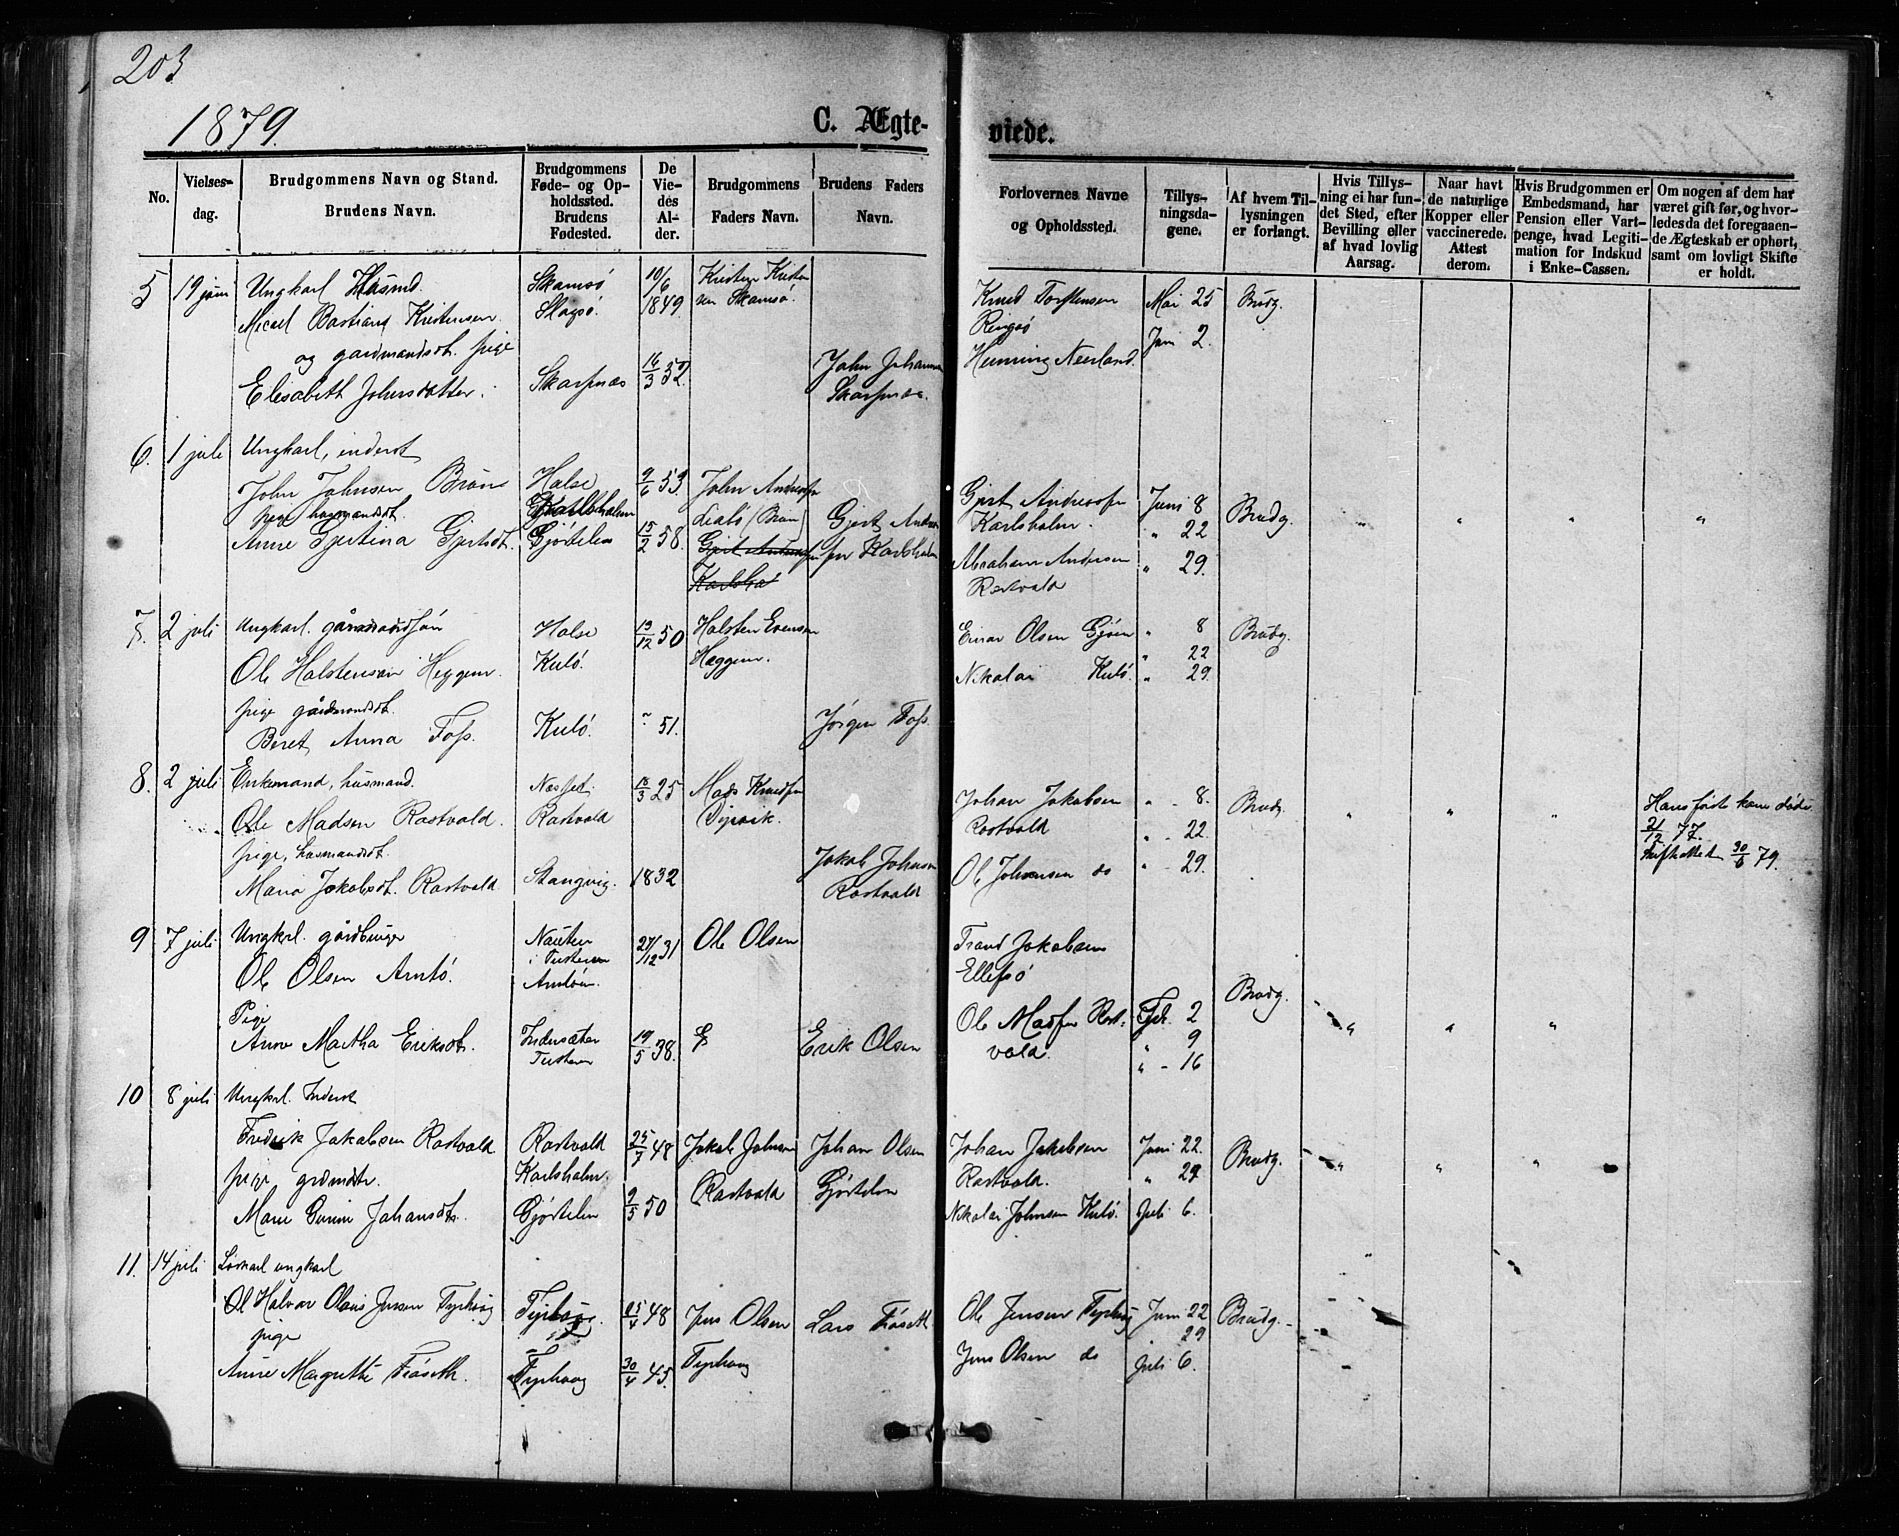 203
1879.
C. Ægte-
viede.
No.
Vielses-
dag.
Brudgommens Navn og Stand.
Brudens Navn.
Brudgommens
Føde- og Op-
holdssted.
Brudens
Fødested.
De
Vie-
des
Al-
der.
Brudgommens
Faders Navn.
Brudens Faders
Navn.
Forlovernes Navne
og Opholdssted.
Tillys-
ningsda-
gene.
Af hvem Til-
lysningen
er forlangt.
Hvis Tillys-
ning ei har fun-
det Sted, efter
Bevilling eller
af hvad lovlig
Aarsag.
Naar havt
de naturlige
Kopper eller
vaccinerede.
Attest
derom.
Hvis Brudgommen er
Embedsmand, har
Pension eller Vart-
penge, hvad Legiti-
mation for Indskud
i Enke-Cassen.
Om nogen af dem har
været gift før, og hvor-
ledes da det foregaaen-
de Ægteskab er ophørt,
samt om lovligt Skifte
er holdt.
5 19 juni Ungkarl Husmd.
Micael Bastians Kristensen
og gardmandsdt. pige
Elisabeth Johnsdatter.
Skamsø
Slagsø.
Skarpnæs
10/6
1849
16/3 52
Kristen Kristen
sen Skamsø.
John Johannes
Skarpnæs.
Knud Torstensen
Ringsø
Henning Neerland
Mai 25
Juni 2.
Brudg.
6. 1 juli Ungkarl, inderst
John Johnsen Bruns
pige husmandsdt.
Anne Gjertina Gjertsdt.
Halse
Karlsholm
Gjörtelen
9/6 53.
15/2 58.
John Andersen
Gjert Andersen
Karlsho
Gjert Andrea
sen Karlsholm
Gjert Andreasen
Karlsholm.
Abraham Andersen
Rastvold
Juni 8
" 22
" 29.
Brudg.
" " " "
7. 2 juli Ungkarl. gårdmandsøn
Ole Halstensøn Heggem.
pige gårdmandsdt.
Beret Anna Foss.
Halse
Kulø.
Kulø.
13/12 50
" 51.
Halsten Evensen
Heggem.
Jörgen Foss.
Einar Olsen Gjøen
Nikolai Kulø.
" 8
" 22
" 29.
Brudg.
8. 2 juli Enkemand, husmand.
Ole Madsen Rastvold.
pige, husmandsdt.
Maria Jakobsdt. Rastvold
Næsset.
Rastvold
Stangvig.
18/3 25
1832
Mads Knudsen
Djpvik.
Jakob Johnsen
Rastvold
Johan Jakobsen
Rastvold
Ole Johnsen do
" - 8.
" - 22.
" - 29.
Brudg.
" " "
Hans förste kone döde
21/12 77.
Skifteattest 30/6 79.
9 7 juli Ungkrl. gårdbruger
Ole Olsen Arntö.
Pige
Anne Martha Eriksdt.
Nausten
i Tusteren
Arntöen.
Indersæter
Tusteren
27/12 31
19/5 38.
Ole Olsen
Erik Olsen
Trond Jakobsen
Ellefsö
Ole Madsen Rast-
vold.
Feb. 2
" 9
" - 16
Brudg.
" " "
10 8 juli Ungkrl. Inderst
Fredrik Jakobsen Rastvold
pige grdmdsdtr.
Mari Gurine Johansdt.
Rastvold
Karlsholm.
Gjörtelen
25/7 48
9/5 50
Jakob Johnsen
Rastvold
Johan Olsen
Gjörtelen
Johan Jakobsen
Rastvold.
Nikolai Johnsen Kulø.
Juni 22.
" 29
Juli 6.
Brudg.
" " "
11. 14 juli Löskarl ungkarl
Ol Halvor Olaus Jensen Typhoug
pige
Anne Margrethe Fröseth.
Typhoug.
Typhoug
25/4 48
30/4 45.
Jens Olsen
Typhoug
Lars Fröseth
Ole Jensen Typhoug
Jens Olsen do
Juni 22
29
Juli 6.
Brudg.